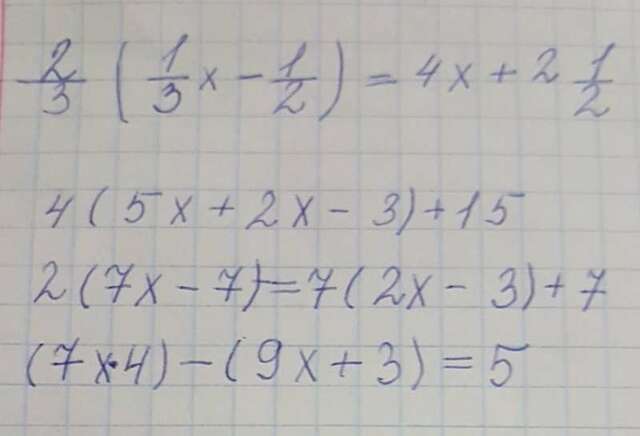 2/3 (1/3 x - 1/2) = 4x + 2 1/2
4(5x + 2x - 3) + 15
2(7x - 7) = 7(2x - 3) + 7
(7x·4) - (9x + 3) = 5